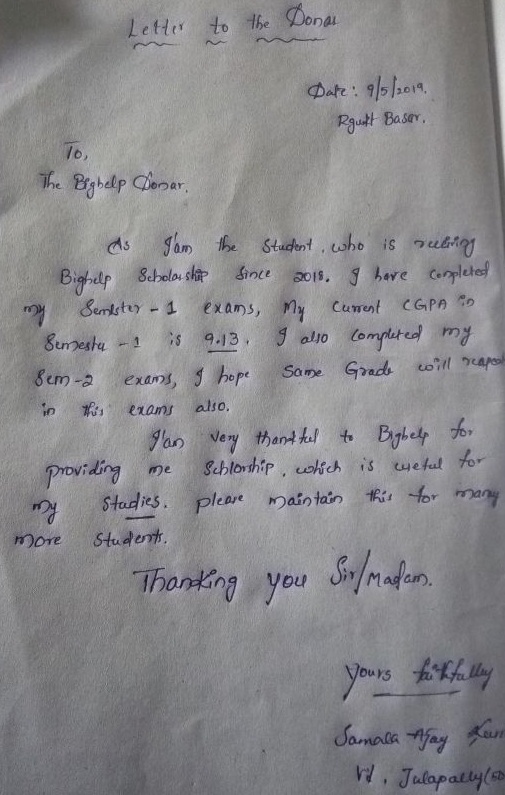 Letter to the Donar
Date: 9/5/2019.
Rgukt Basar.
To,
The Bighelp Donar.
As I'am the Student, who is
Bighelp Scholarship Since 2018. I have completed
my Semister-1 exams, My current CGPA in
Semester-1 is 9.13. I also completed my
Sem-2 exams, I hope Same Grade will reapeat
in this exams also.
I'am very thankful to Bighelp for
providing me Schlorship, which is useful for
my studies. please maintain this for many
more students.
Thanking you Sir/Madam.
yours faithfully
Samala Ajay
Vil, Julapally(